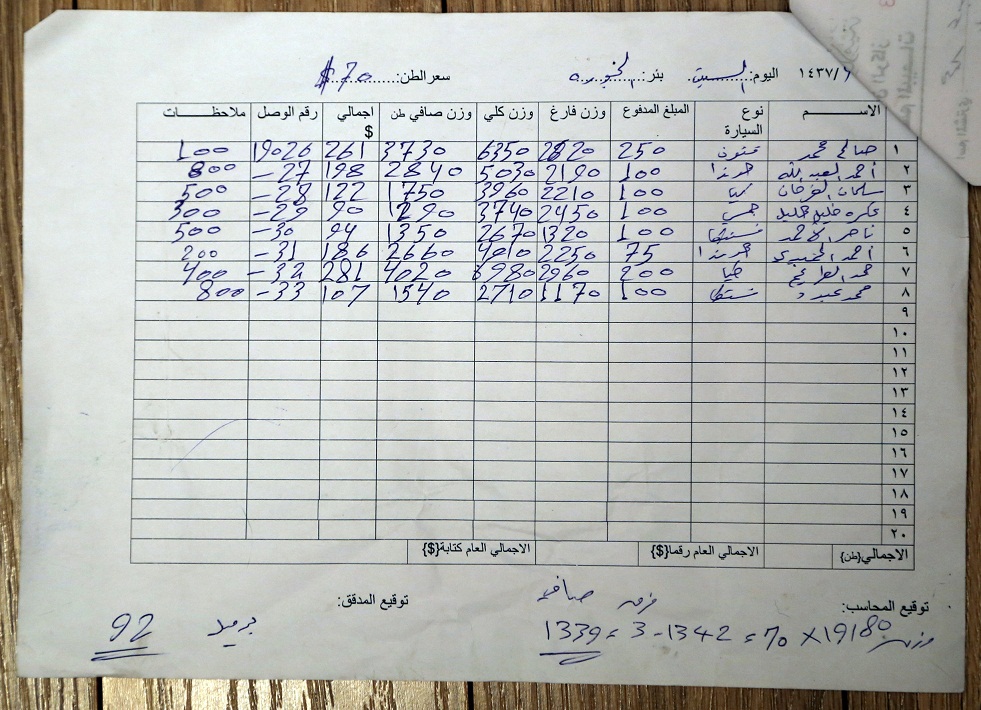 ١٤٣٧/٦ اليوم: السبت بئر: الخبوره سعر الطن: 70$
الاســـم نوع السيارة المبلغ المدفوع وزن فارغ وزن كلي وزن صافي طن اجمالي $ رقم الوصل ملاحظـــات
١ صالح محمد 250 2820 6350 3730 261 19026 100
٢ احمد العبد الله 100 2190 5030 2840 198 -27 800
٣ سلمان الفرحان كيا 100 2210 3960 1750 122 -28 500
٤ 100 2450 3740 1290 90 -29 300
٥ ناصر الاحمد 100 1320 2670 1350 94 -30 500
٦ احمد 75 2250 4910 2660 186 -31 200
٧ محمد 200 2960 6980 4020 281 -32 400
٨ محمد عبد 100 1170 2710 1540 107 -33 800
٩
١٠
١١
١٢
١٣
١٤
١٥
١٦
١٧
١٨
١٩
٢٠
الاجمالي{طن} الاجمالي العام رقما{$} الاجمالي العام كتابة{$}
توقيع المحاسب: توقيع المدقق:
فرق صافي
وزن 19180 × 70 = 1342 - 3 = 1339
برميل 92